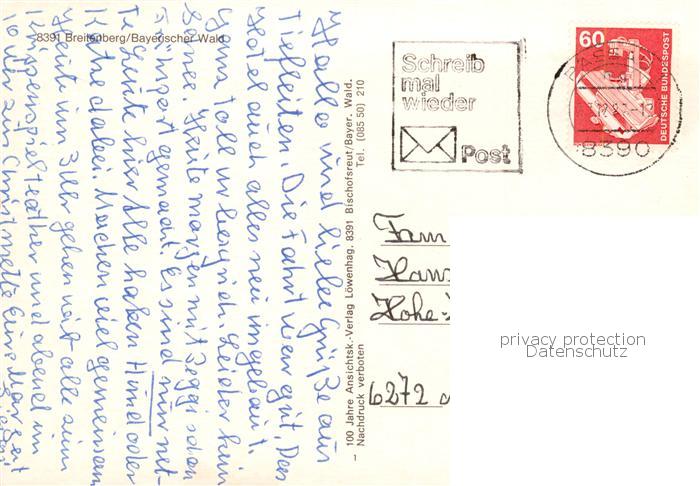 8391 Breitenberg/Bayerischer Wald
Hallo und liebe Grüße aus
Tiefleiten. Die Fahrt war gut. Das
Hotel auch alles neu umgebaut.
Ganz toll in bergrich. Leider kein
Schnee. Heute morgen mit Peggi schon
gemacht. Es sind nur net-
te Leute hier Alle haben Hund oder
Katze dabei. Machen viel gemeinsam
Heute um 3 Uhr gehen wir alle zum
Krippenspieltheather und abend um
10 Uhr zur Christmette Eure Margret
100 Jahre Ansichtsk.-Verlag Löwenhag, 8391 Bischofsreut/Bayer. Wald.
Nachdruck verboten
Tel. (085 50) 210
1
Schreib
mal
wieder
Post
60
DEUTSCHE BUNDESPOST
8390
Fam
Hans
Hohe-
6272
privacy protection
Datenschutz